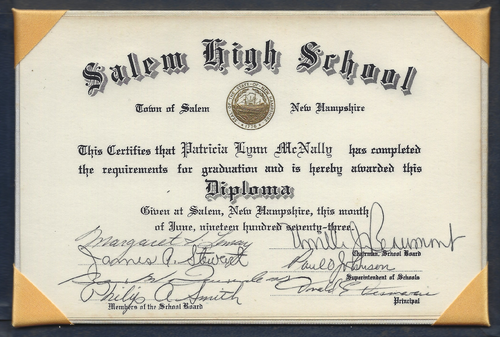 Salem High School
Town of Salem New Hampshire
This Certifies that Patricia Lynn McNally has completed
the requirements for graduation and is hereby awarded this
Diploma
Given at Salem, New Hampshire, this month
of June, nineteen hundred seventy-three.
Margaret
James A. Stewart
Philip A Smith
Members of the School Board
Beaumont
Chairman, School Board
Paul Johnson
Superintendent of Schools
Principal